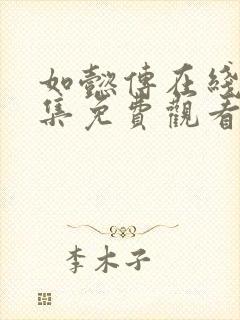 如懿傳在綫
集免費觀看
李木子